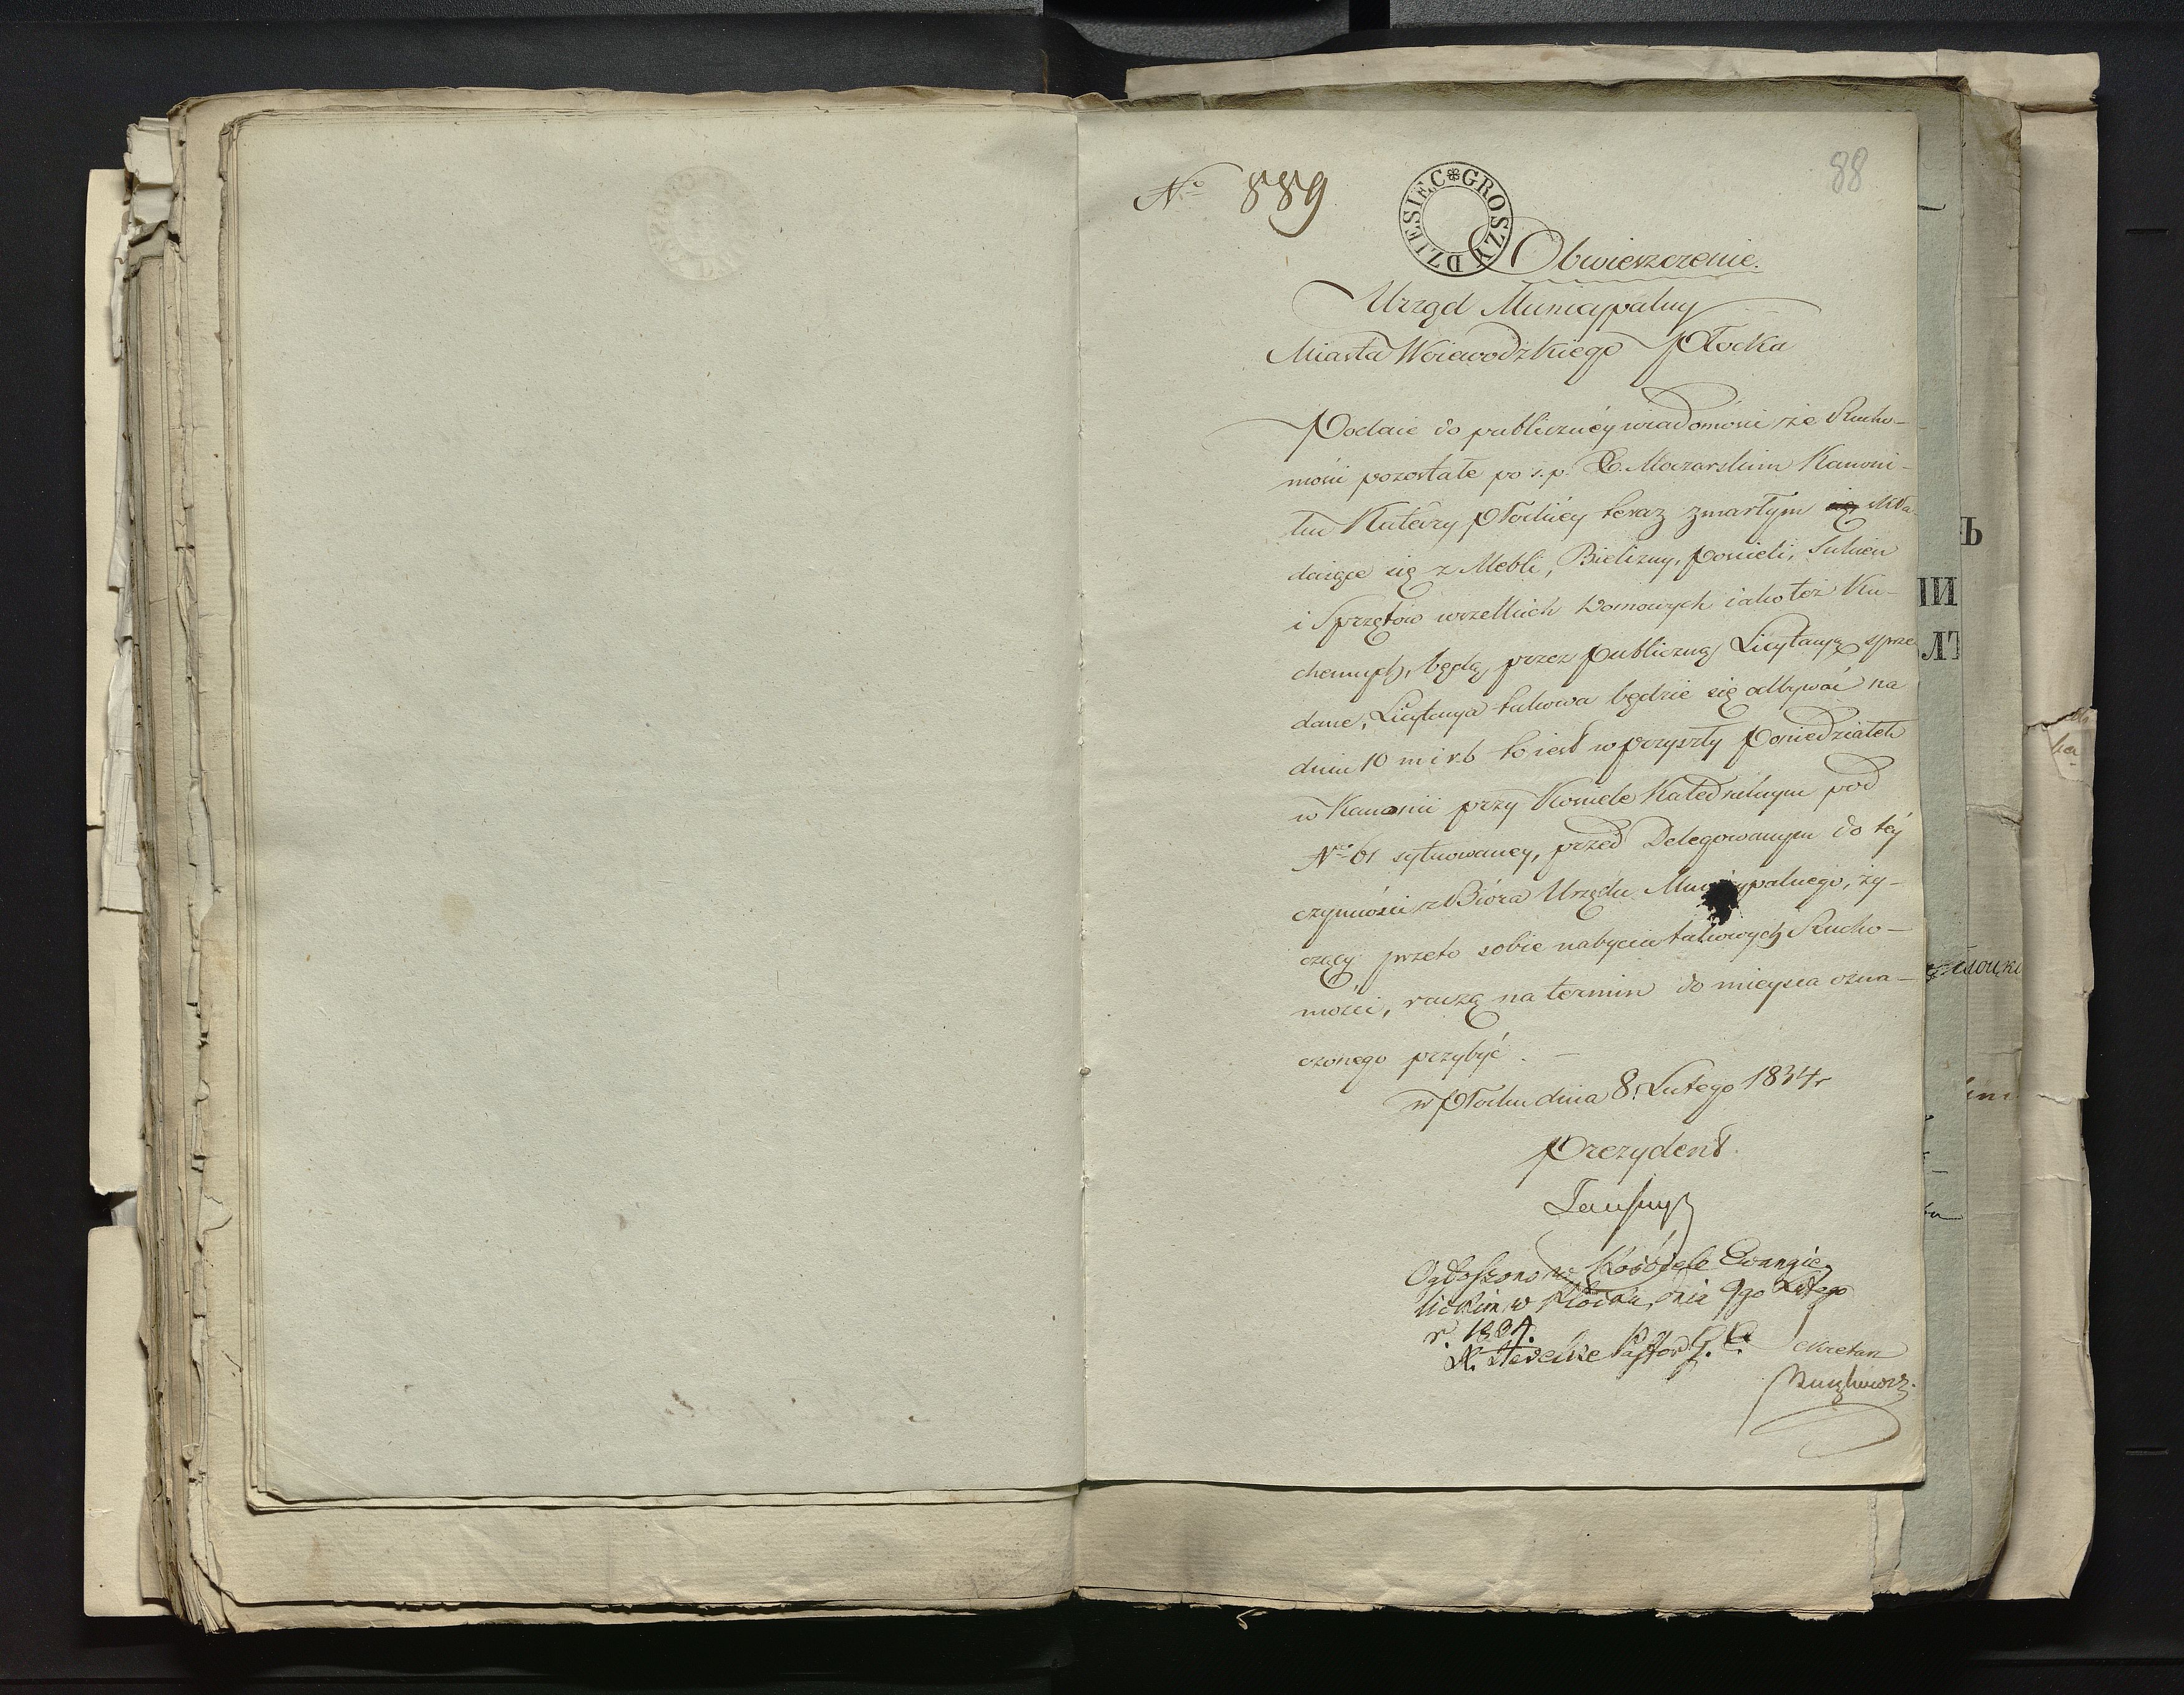 88
N<sup>o</sup> 889
DZIESIEC GROSZY
Obwieszczenie.
Urząd Municypalny
Miasta Woiewodzkiego Płocka
Podaie do publiczney wiadomości że Rucho-
mości pozostałe po ś. p. X. Moczarskim Kanoni-
ku Katedry Płockiey teraz zmarłym skła-
daiące się z Mebli, Bielizny, Pościeli, Sukien
i Sprzętów wszelkich Domowych iako też Ku-
chennych, będą przez Publiczną Licytacyą sprze
dane, Licytacya takowa będzie się odbywać na
dniu 10 m i r. b to iest w przyszły Poniedziałek
w Kanonii przy Kościele Katedralnym pod
N<sup>o</sup> 61 sytuowaney, przed Delegowanym do tey
czynności z Bióra Urzędu Municypalnego, ży-
czący przeto sobie nabycia takowych Rucho-
mości, raczą na termin do mieysca ozna-
czonego przybyć. —
w Płocku dnia 8. Lutego 1834 r
Prezydent
Ogłoszono w Kościele Ewangie-
lickim w Płocku, dnia 9go Lutego
r. 1834.
Pastor G. E.
Sekretarz